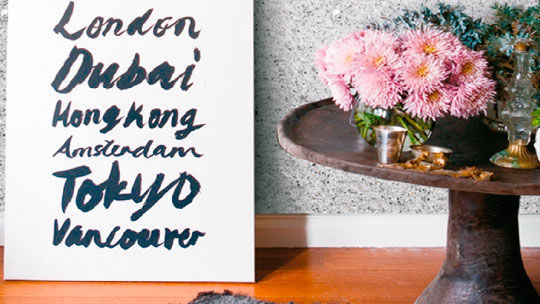 London
Dubai
Hong Kong
Amsterdam
Tokyo
Vancouver